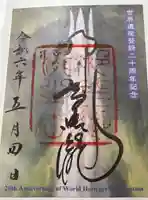 世界遺産登録二十周年記念
御瀧
令和六年五月四日
20th Anniversary of World Heritage